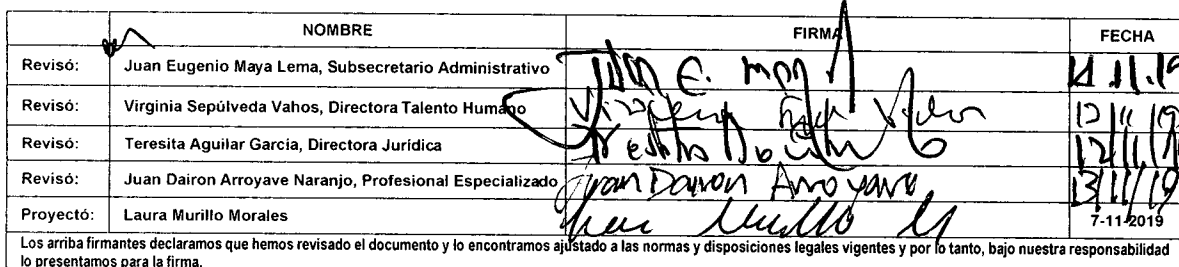 NOMBRE FIRMA FECHA
Revisó: Juan Eugenio Maya Lema, Subsecretario Administrativo Juan E. 14.11.19
Revisó: Virginia Sepúlveda Vahos, Directora Talento Humano 13/11/19
Revisó: Teresita Aguilar Garcia, Directora Jurídica 12/11/19
Revisó: Juan Dairon Arroyave Naranjo, Profesional Especializado Juan Dairon Arroyave 13/11/19
Proyectó: Laura Murillo Morales Laura Murillo M 7-11-2019
Los arriba firmantes declaramos que hemos revisado el documento y lo encontramos ajustado a las normas y disposiciones legales vigentes y por lo tanto, bajo nuestra responsabilidad
lo presentamos para la firma.